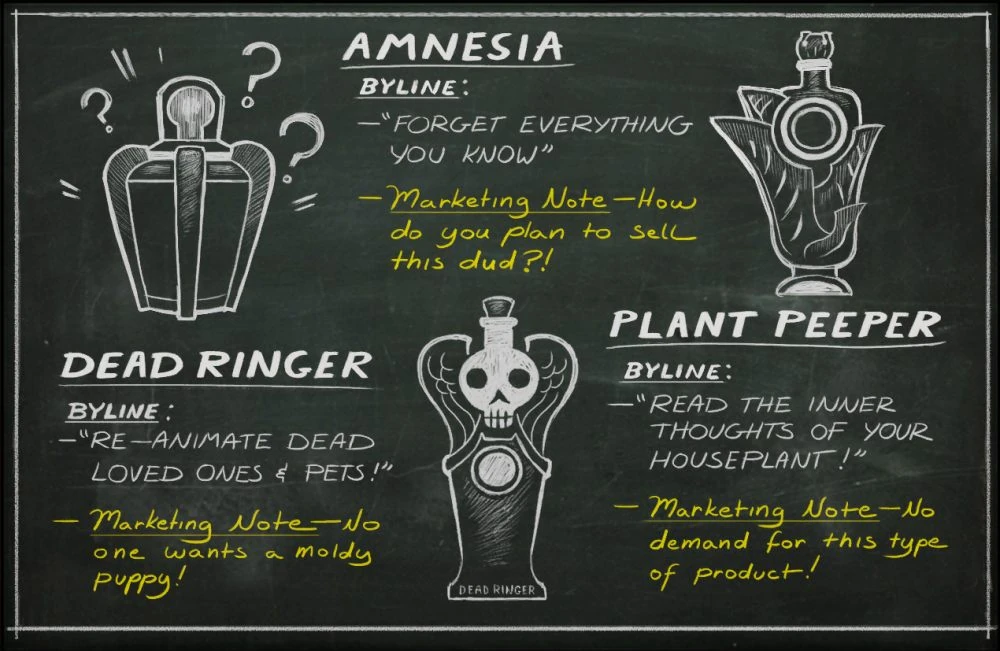 AMNESIA
BYLINE:
—"FORGET EVERYTHING
YOU KNOW"
— Marketing Note—How
do you plan to sell
this dud?!
DEAD RINGER
BYLINE:
—"RE-ANIMATE DEAD
LOVED ONES & PETS!"
— Marketing Note—No
one wants a moldy
puppy!
DEAD RINGER
PLANT PEEPER
BYLINE:
—"READ THE INNER
THOUGHTS OF YOUR
HOUSEPLANT!"
— Marketing Note—No
demand for this type
of product!